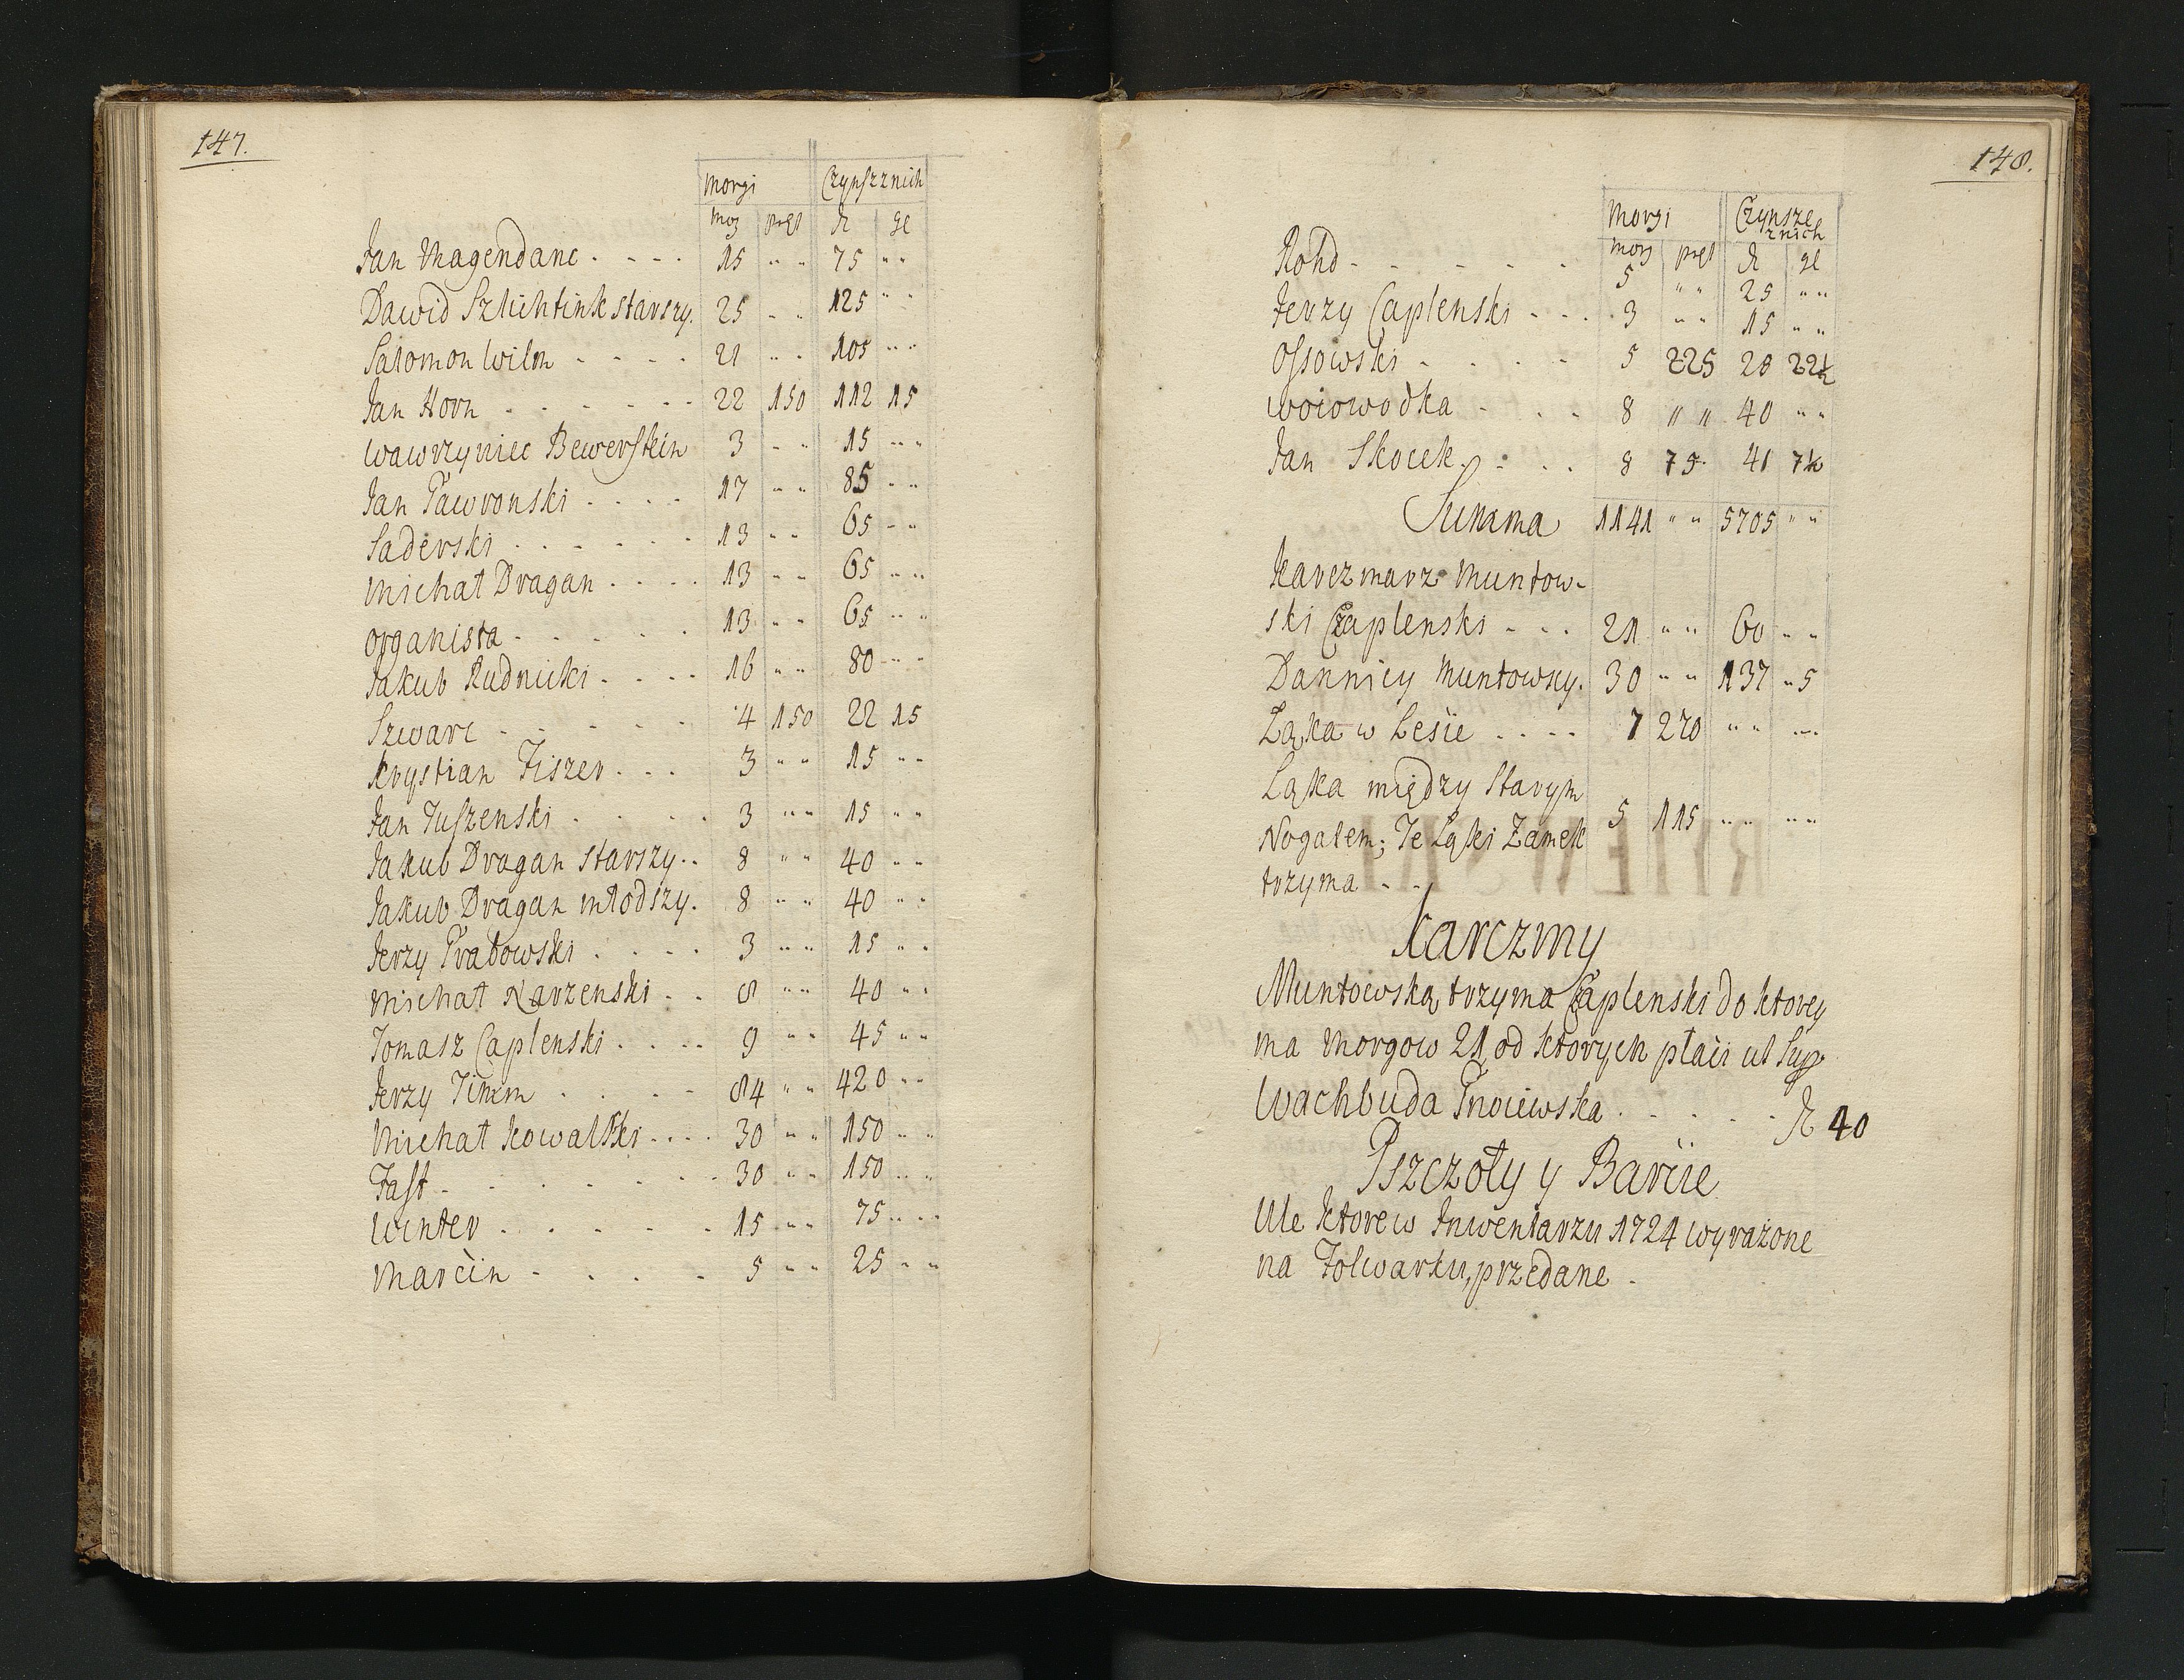 147.
Morgi Czynsz znich
Mor pręt zł gl
Jan Magendanc . - - . 15 " " 75 " "
Dawid Szlichtink starszy. 25 " " 125 " "
Salomon Wilm - - - - 21 " " 105 " "
Jan Horn . - - - - - - 22 150 112 15
Wawrzyniec Bewerstein 3 " " 15 " "
Jan Gawronski - - - - 17 " " 85 " "
Saderski - - - - - - 13 " " 65 " "
Michał Dragan . . . . 13 " " 65 " "
Organista - - - - - . 13 " " 65 " "
Jakub Rudnicki . - - - 16 " " 80 " "
Szwarc - - - - - 4 150 22 15
Krystian Fiszer . . . 3 " " 15 " "
Jan Juszenski . . . . 3 " " 15 " "
Jakub Dragan starszy . . 8 " " 40 " "
Jakub Dragan młodszy . 8 " " 40 " "
Jerzy Grabowski . . . . 3 " " 15 " "
Michał Narzenski . . 8 " " 40 " "
Tomasz Caplenski . . . . 9 " " 45 " "
Jerzy Timm . . . - 84 " " 420 " "
Michał Kowalski . . . . 30 " " 150 " "
Fast - . . . . . . 30 " " 150 " "
Winter . . . . . . 15 " " 75 " "
Marcin - . . . . 5 " " 25 " "
148.
Morgi Czynsze znich
Morg pręt zł gl
Rohd - - - - - 5 " " 25 " "
Jerzy Caplenski - - . . 3 " " 15 " "
Ossowski - - - - 5 225 28 22½
Woiowodka - . . . 8 " " 40 " "
Jan Skocek . - . . 8 75 41 7½
Summa 1141 " " 5705 " "
Karczmarz Muntow-
ski Czaplenski - - . 21 " " 60 " "
Dannicy Muntowscy. 30 " " 137 " 5
Łąka w Lesie . . . . 7 270 " " " "
Łąka między Starym
Nogatem; Te Łąki Zamek 5 115 " " " "
trzyma - -
Karczmy
Muntowską trzyma Czaplenski do ktorey
ma Morgow 21, od ktorych płaci ut Sup
Wachbuda Gnoiewska . - . . . zł 40
Pszczoły y Barcie
Ule ktore w Inwentarzu 1724 wyrażone
na Folwarku, przedane .